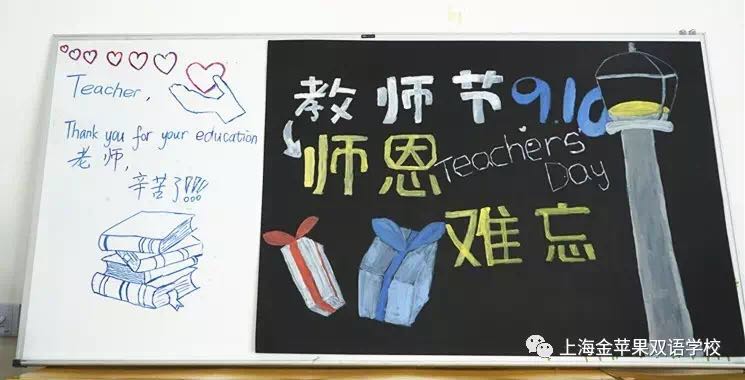 Teacher,
Thank you for your education
老师,
辛苦了!!!
教师节 9.10
师恩
Teachers
Day
难忘
上海金苹果双语学校